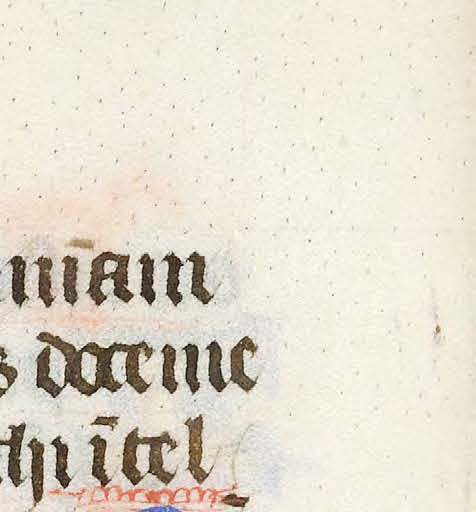 mīam
s doce me
chi ītel